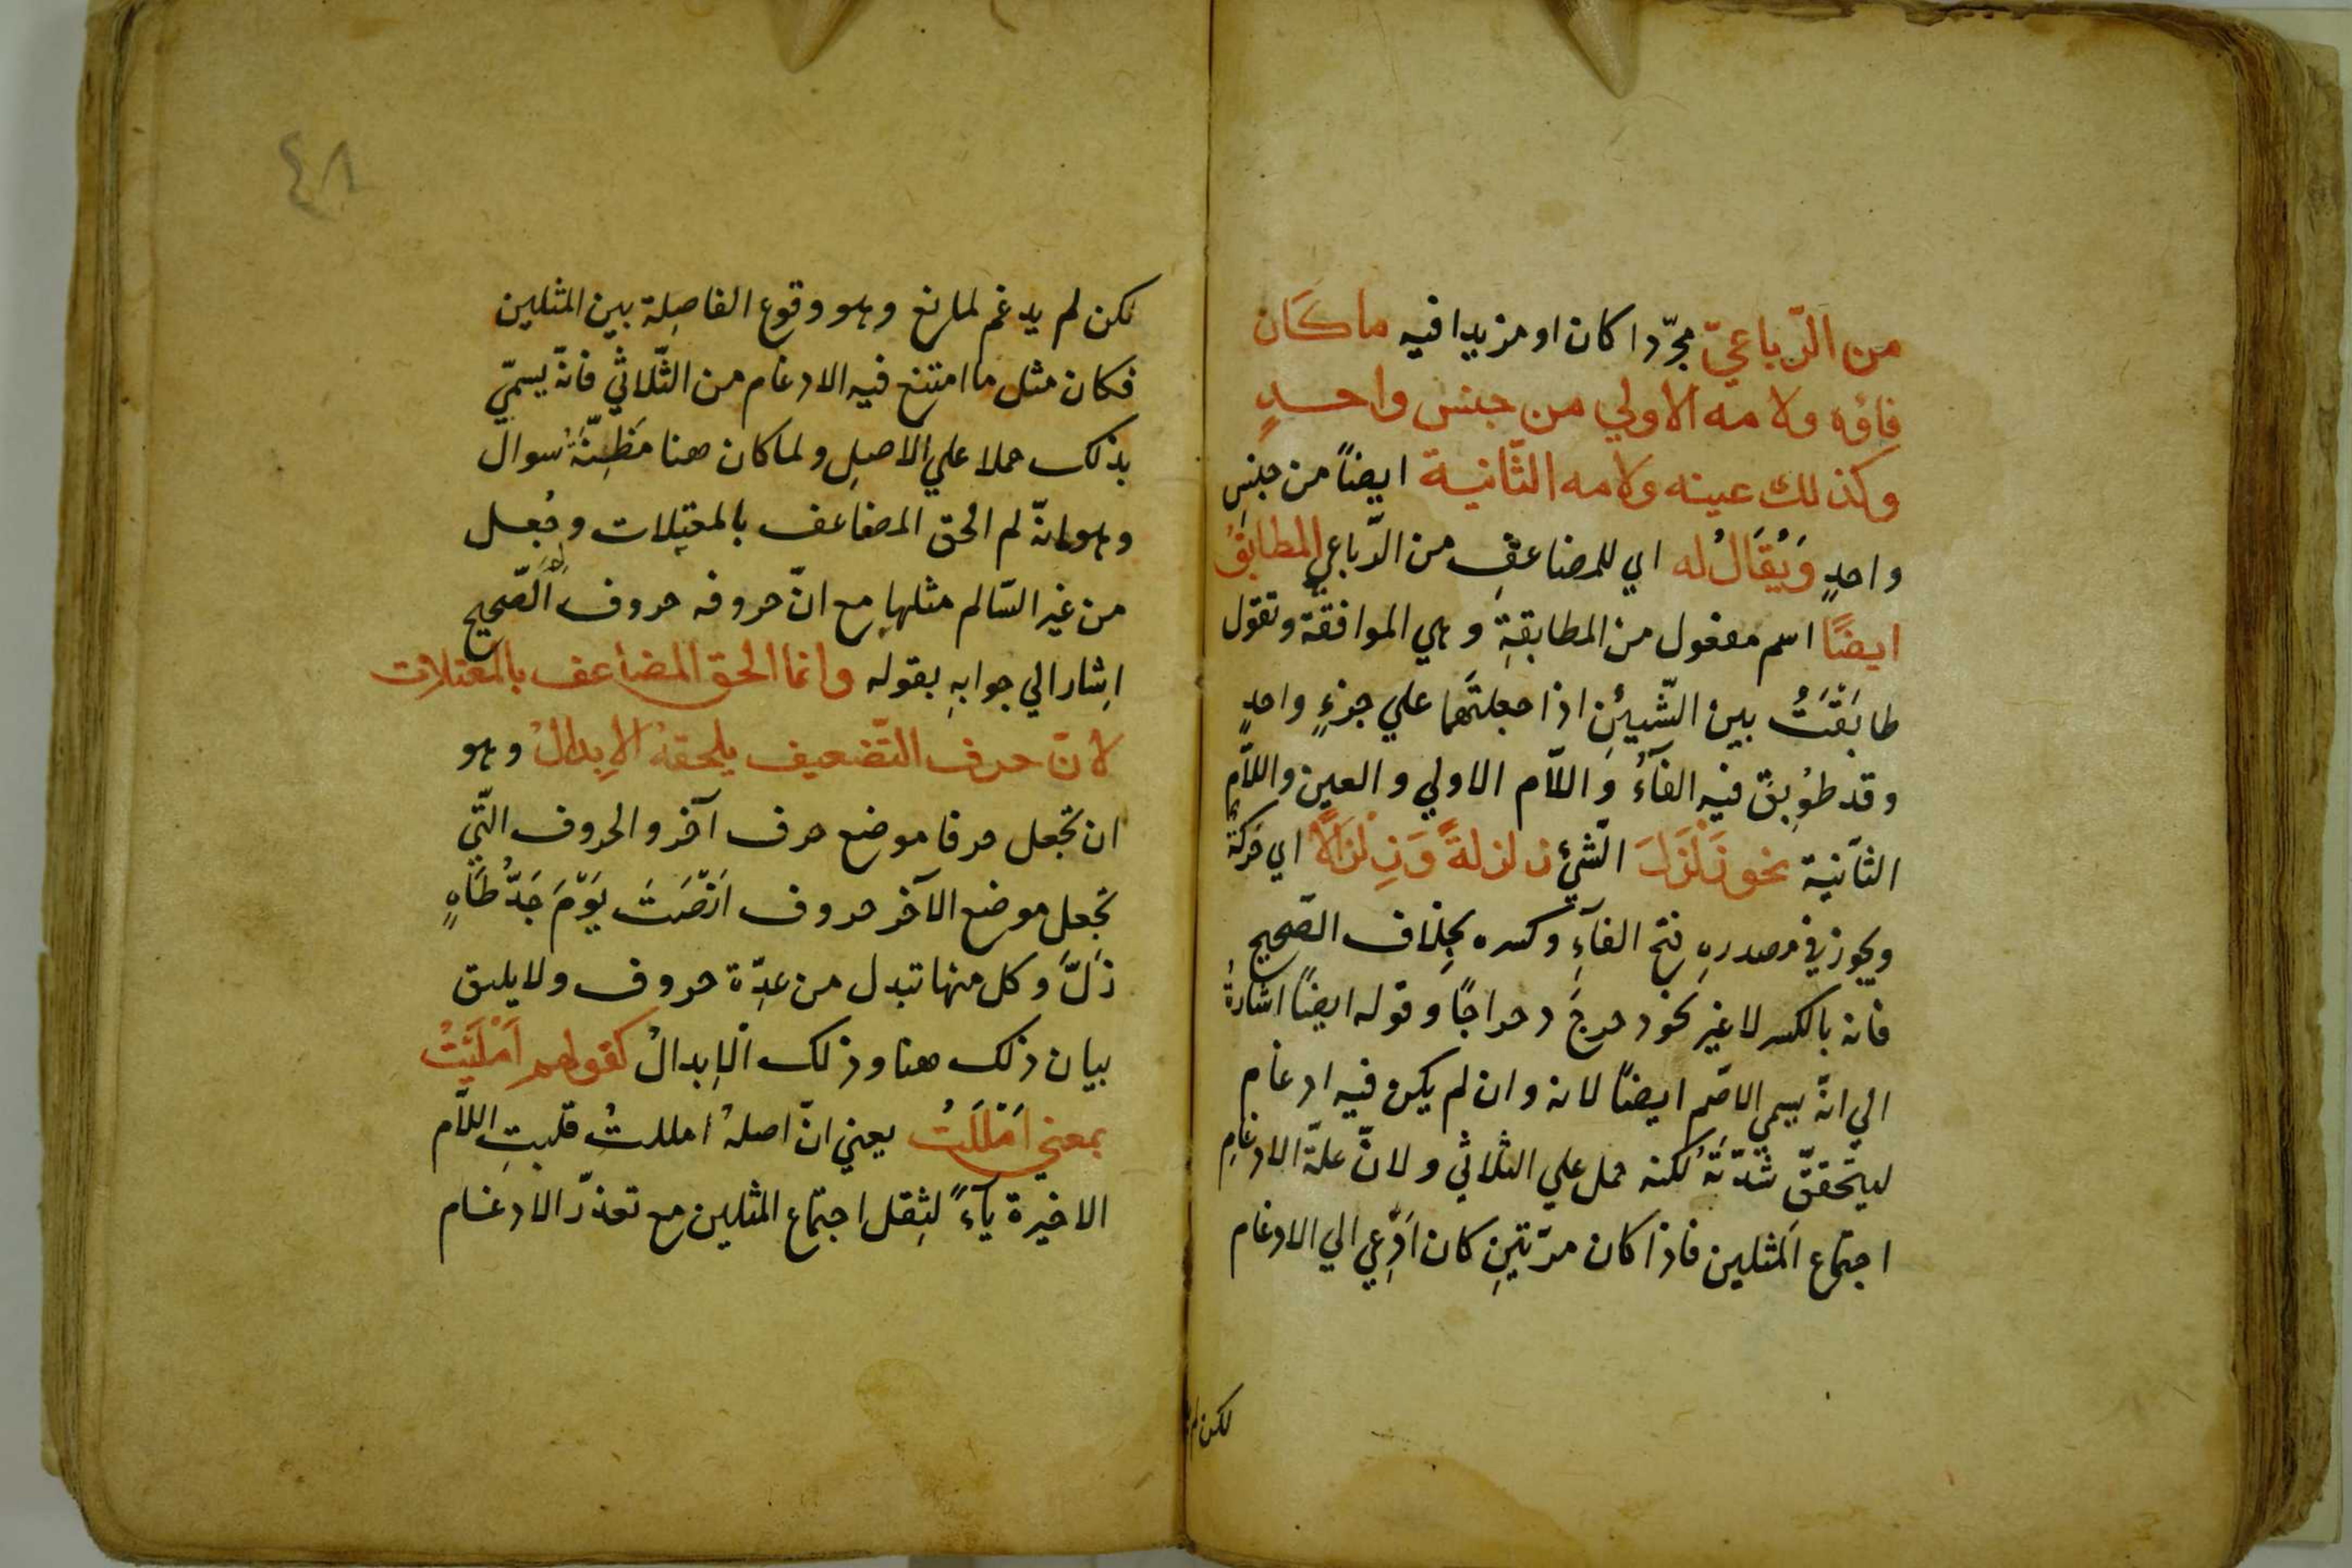 من الرّباعيّ مجرّدا كان او مزيدا فيه ما كَان
فاؤه ولامه الاولي من جنس واحدٍ
وكذلك عينه ولامه الثّانية ايضاً من جنسِ
واحدٍ وَيُقَالُ له اي للمضاعفِ من الرّباعي المطابَقُ
ايضًا اسم مفعول من المطابقةِ وهي الموافقة وتقول
طابَقْتُ بين الشّيئينِ اذا جعلتَهما علي جزءٍ واحدٍ
وقد طوُبِقَ فيه الفآءُ واللاّم الاولي والعين واللاّم
الثّانية نحو زَلْزَلَ الشّيْ زلزلةً وَزِلْزَالًا اي حَركة
ويجوز في مصدرهِ فتح الفآءِ وكسره بخِلاف الصّحيح
فانه بالكسر لا غير نحو دحرجَ دحراجًا وقوله ايضًا اشارةٌ
الي انّه يسمي الاصّم ايضًا لانه وان لم يكن فيه ادغام
ليتحقّقَ شدّتَهُ لكنه حمل علي الثّلاثي ولانّ علّة الادغامِ
اجتماع المثلين فاذا كان مرّتينِ كان ادّعي الي الادغام
لكن لم
٤٨
لكن لم يدغم لمانع وهو وقوع الفاصِلة بين المثلين
فكان مثل ما امتنع فيه الادغام من الثّلاثي فانّه يسمّي
بذلك حملا علي الاصلِ ولما كان هنا مَظِنّةُ سوال
وهو انّه لم الحق المضاعف بالمعتلات وجُعل
من غير السّالم مثلها مع انّ حروفه حروف الصّحيح
اشار الي جوابهِ بقوله وانما الحق المضاعف بالمعتلات
لانّ حرف التّضعيف يلحقهُ الابِدالُ وهو
ان تجعل حرفا موضع حرف آخر والحروف التّي
تجعل موضع الآخر حروف اَنْصَتَ يَوْمَ جَدُّ طَاهٍ
زَلَّ وكل منها تبدل من عدِّة حروف ولا يليق
بيان ذلك هنا وذلك الابِدالُ كقولهم اَمْلَيْتُ
بمعني اَمْلَلْتُ يعني انّ اصلهُ امللتُ قلبتِ اللاّم
الاخيرة يآءً لثِقل اجتماع المثلين مع تعذّر الادغام